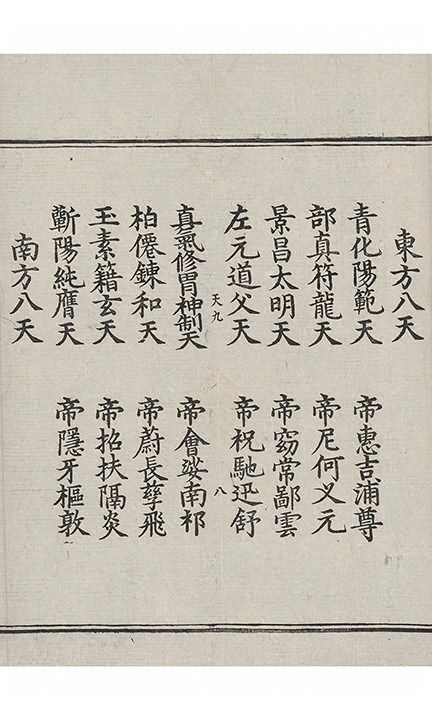 東方八天
青化陽範天 帝惠吉浦尊
部真符龍天 帝尼何义元
景昌太明天 帝窈常鄙雲
左元道父天 帝祝馳迅舒
天九 八
真氣修胃神制天 帝會婆南祁
柏僊錬和天 帝蔚長孽飛
玉素籍玄天 帝招扶隔炎
蘄陽純膺天 帝隱牙樞敦
南方八天